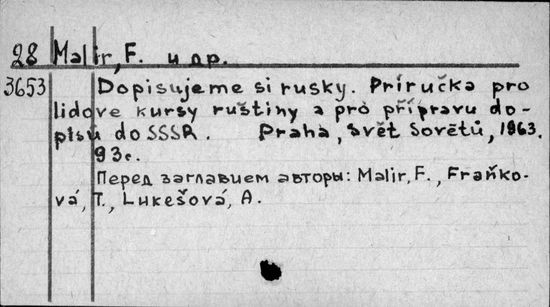 28 Malir, F. и др.
3653 Dopisujeme si rusky. Príručka pro
lidove kursy ruštiny a pro přípravu do-
pisů do SSSR. Praha, Svět Sovětů, 1963.
93с.
Перед заглавием авторы: Malir, F., Fraňko-
vá, T., Lukešová, A.